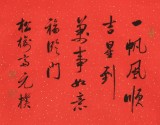 一帆風順
吉星到
萬事如意
福臨門